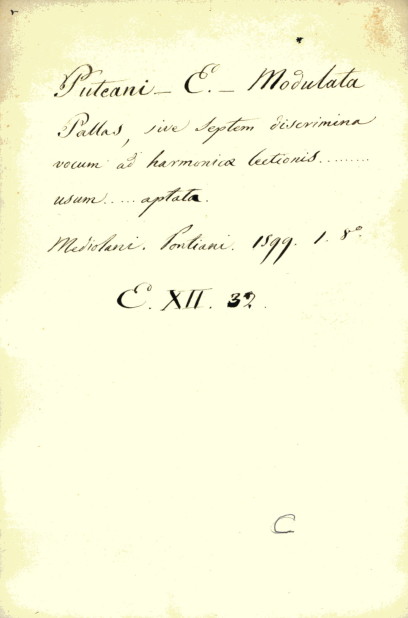 Puteani – E. – Modulata
Pallas, sive septem discrimina
vocum ad harmonicæ lectionis.........
usum..... aptata.
Mediolani. Pontiani. 1599. 1. 8°.
E. XII. 32.
C